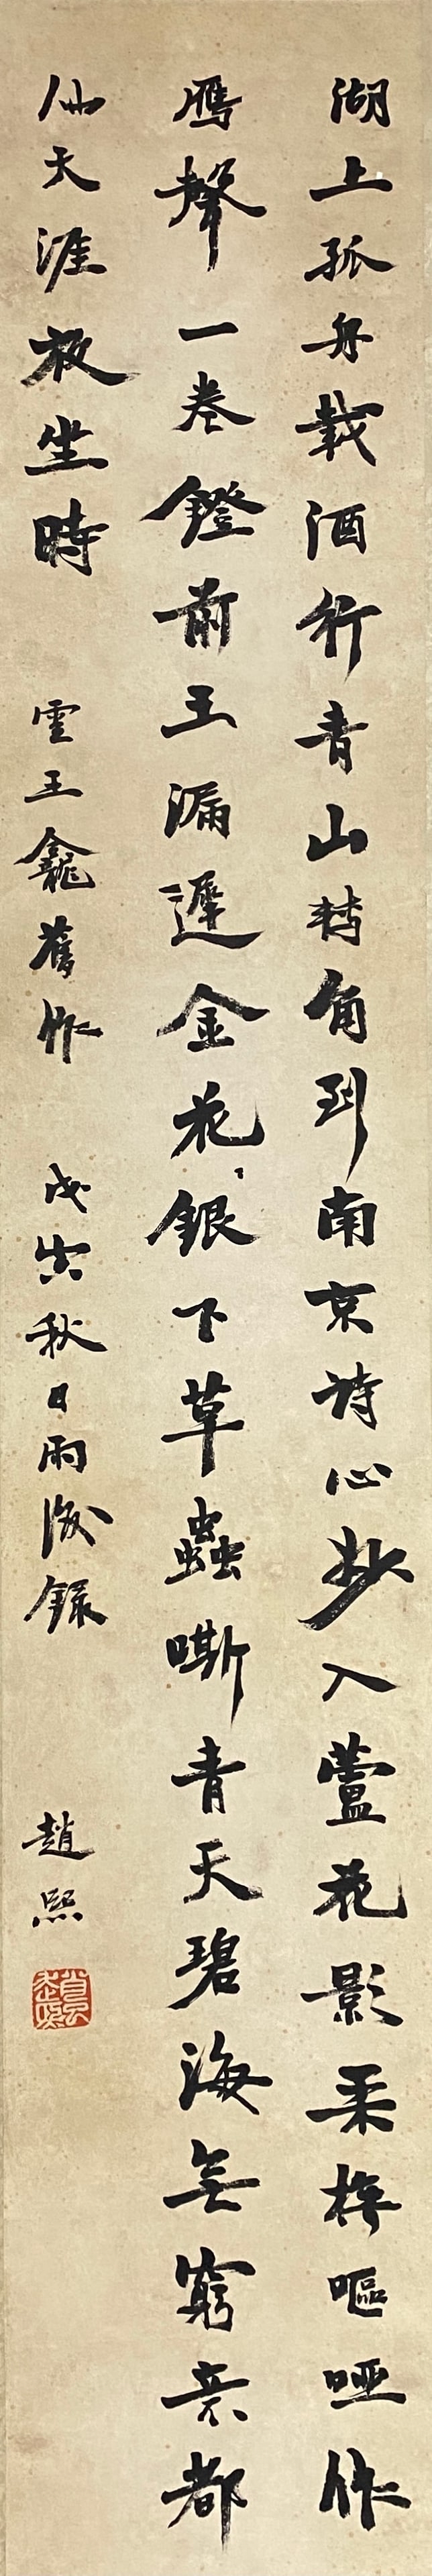 湖上孤舟載酒行青山轉角到南京詩心抄入蘆花影柔櫓嘔啞作
鴈聲一卷鐙前玉漏遲金花銀下草蟲嘶青天碧海無窮意都
仙天涯放坐時 雲王龕舊作 戊寅秋日雨後錄 趙熙